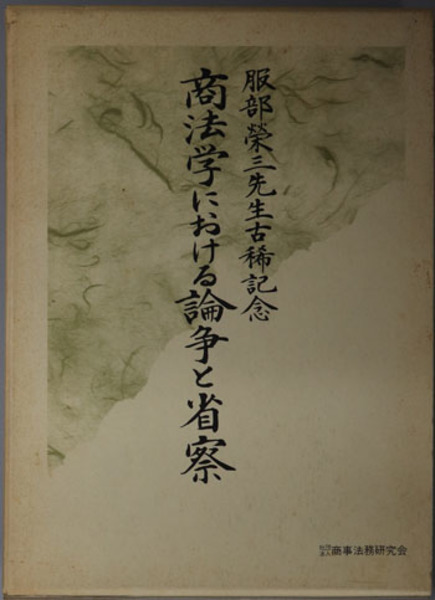 服部榮三先生古稀記念
商法学における論争と省察
社団法人 商事法務研究会